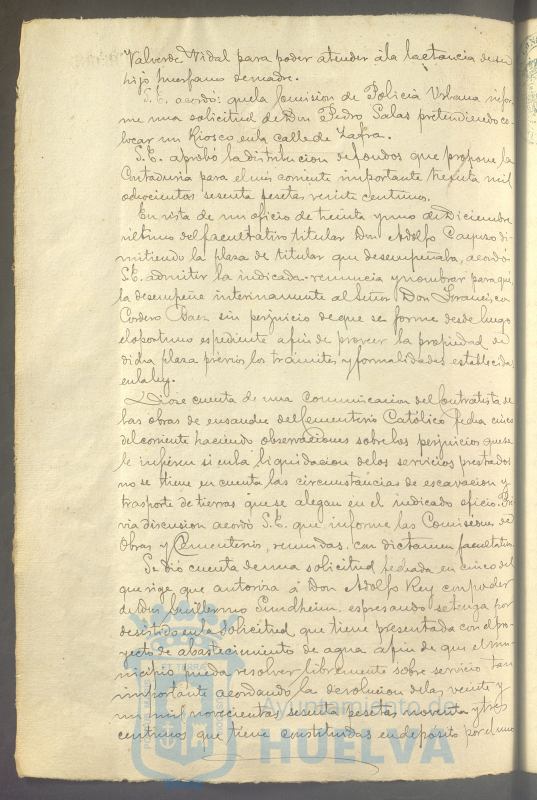 Valverde Vidal para poder atender á la lactancia de su
hijo huerfano de madre.
S.E. acordó: que la Comision de Policia Urbana infor-
me una solicitud de Don Pedro Salas pretendiendo co-
locar un Kiosco en la calle de Zafra.
S.E. aprobó la distribucion de fondos que propone la
Contaduria para el mes corriente importante treinta mil
ochocientos sesenta pesetas veinte centimos.
En vista de un oficio de treinta y uno de Diciembre
ultimo del facultativo titular Don Adolfo Cayuso di-
mitiendo la plaza de titular que desempeñaba, acordó
S.E. admitir la indicada renuncia y nombrar para que
la desempeñe interinamente al Señor Don Francisco
Cordero Baez sin perjuicio de que se forme desde luego
el oportuno espediente a fin de proveer la propiedad de
dicha plaza previos los trámites y formalidades establecidas
en la ley.
Diose cuenta de una comunicacion del contratista de
las obras de ensanche del Cementerio Católico fecha cinco
del corriente haciendo observaciones sobre los perjuicios que se
le infieren si en la liquidacion de los servicios prestados
no se tiene en cuenta las circunstancias de escavacion y
trasporte de tierras que se alegan en el indicado oficio. Pré-
via discusion acordó S.E. que informe las Comisiones de
Obras y Cementerio, reunidas, con dictamen facultativo.
Se dió cuenta de una solicitud fechada en cinco del
que rige que autoriza á Don Adolfo Rey con poder
de Don Guillermo Sundheim espresando se tenga por
desistido en la solicitud que tiene presentada con el pro-
yecto de abastecimiento de agua a fin de que el mu-
nicipio pueda resolver libremente sobre servicio tan
importante acordando la devolucion de las veinte y
un mil novecientas sesenta pesetas noventa y tres
centimos que tiene constituidas en depósito por el uno
Ayuntamiento de
HUELVA